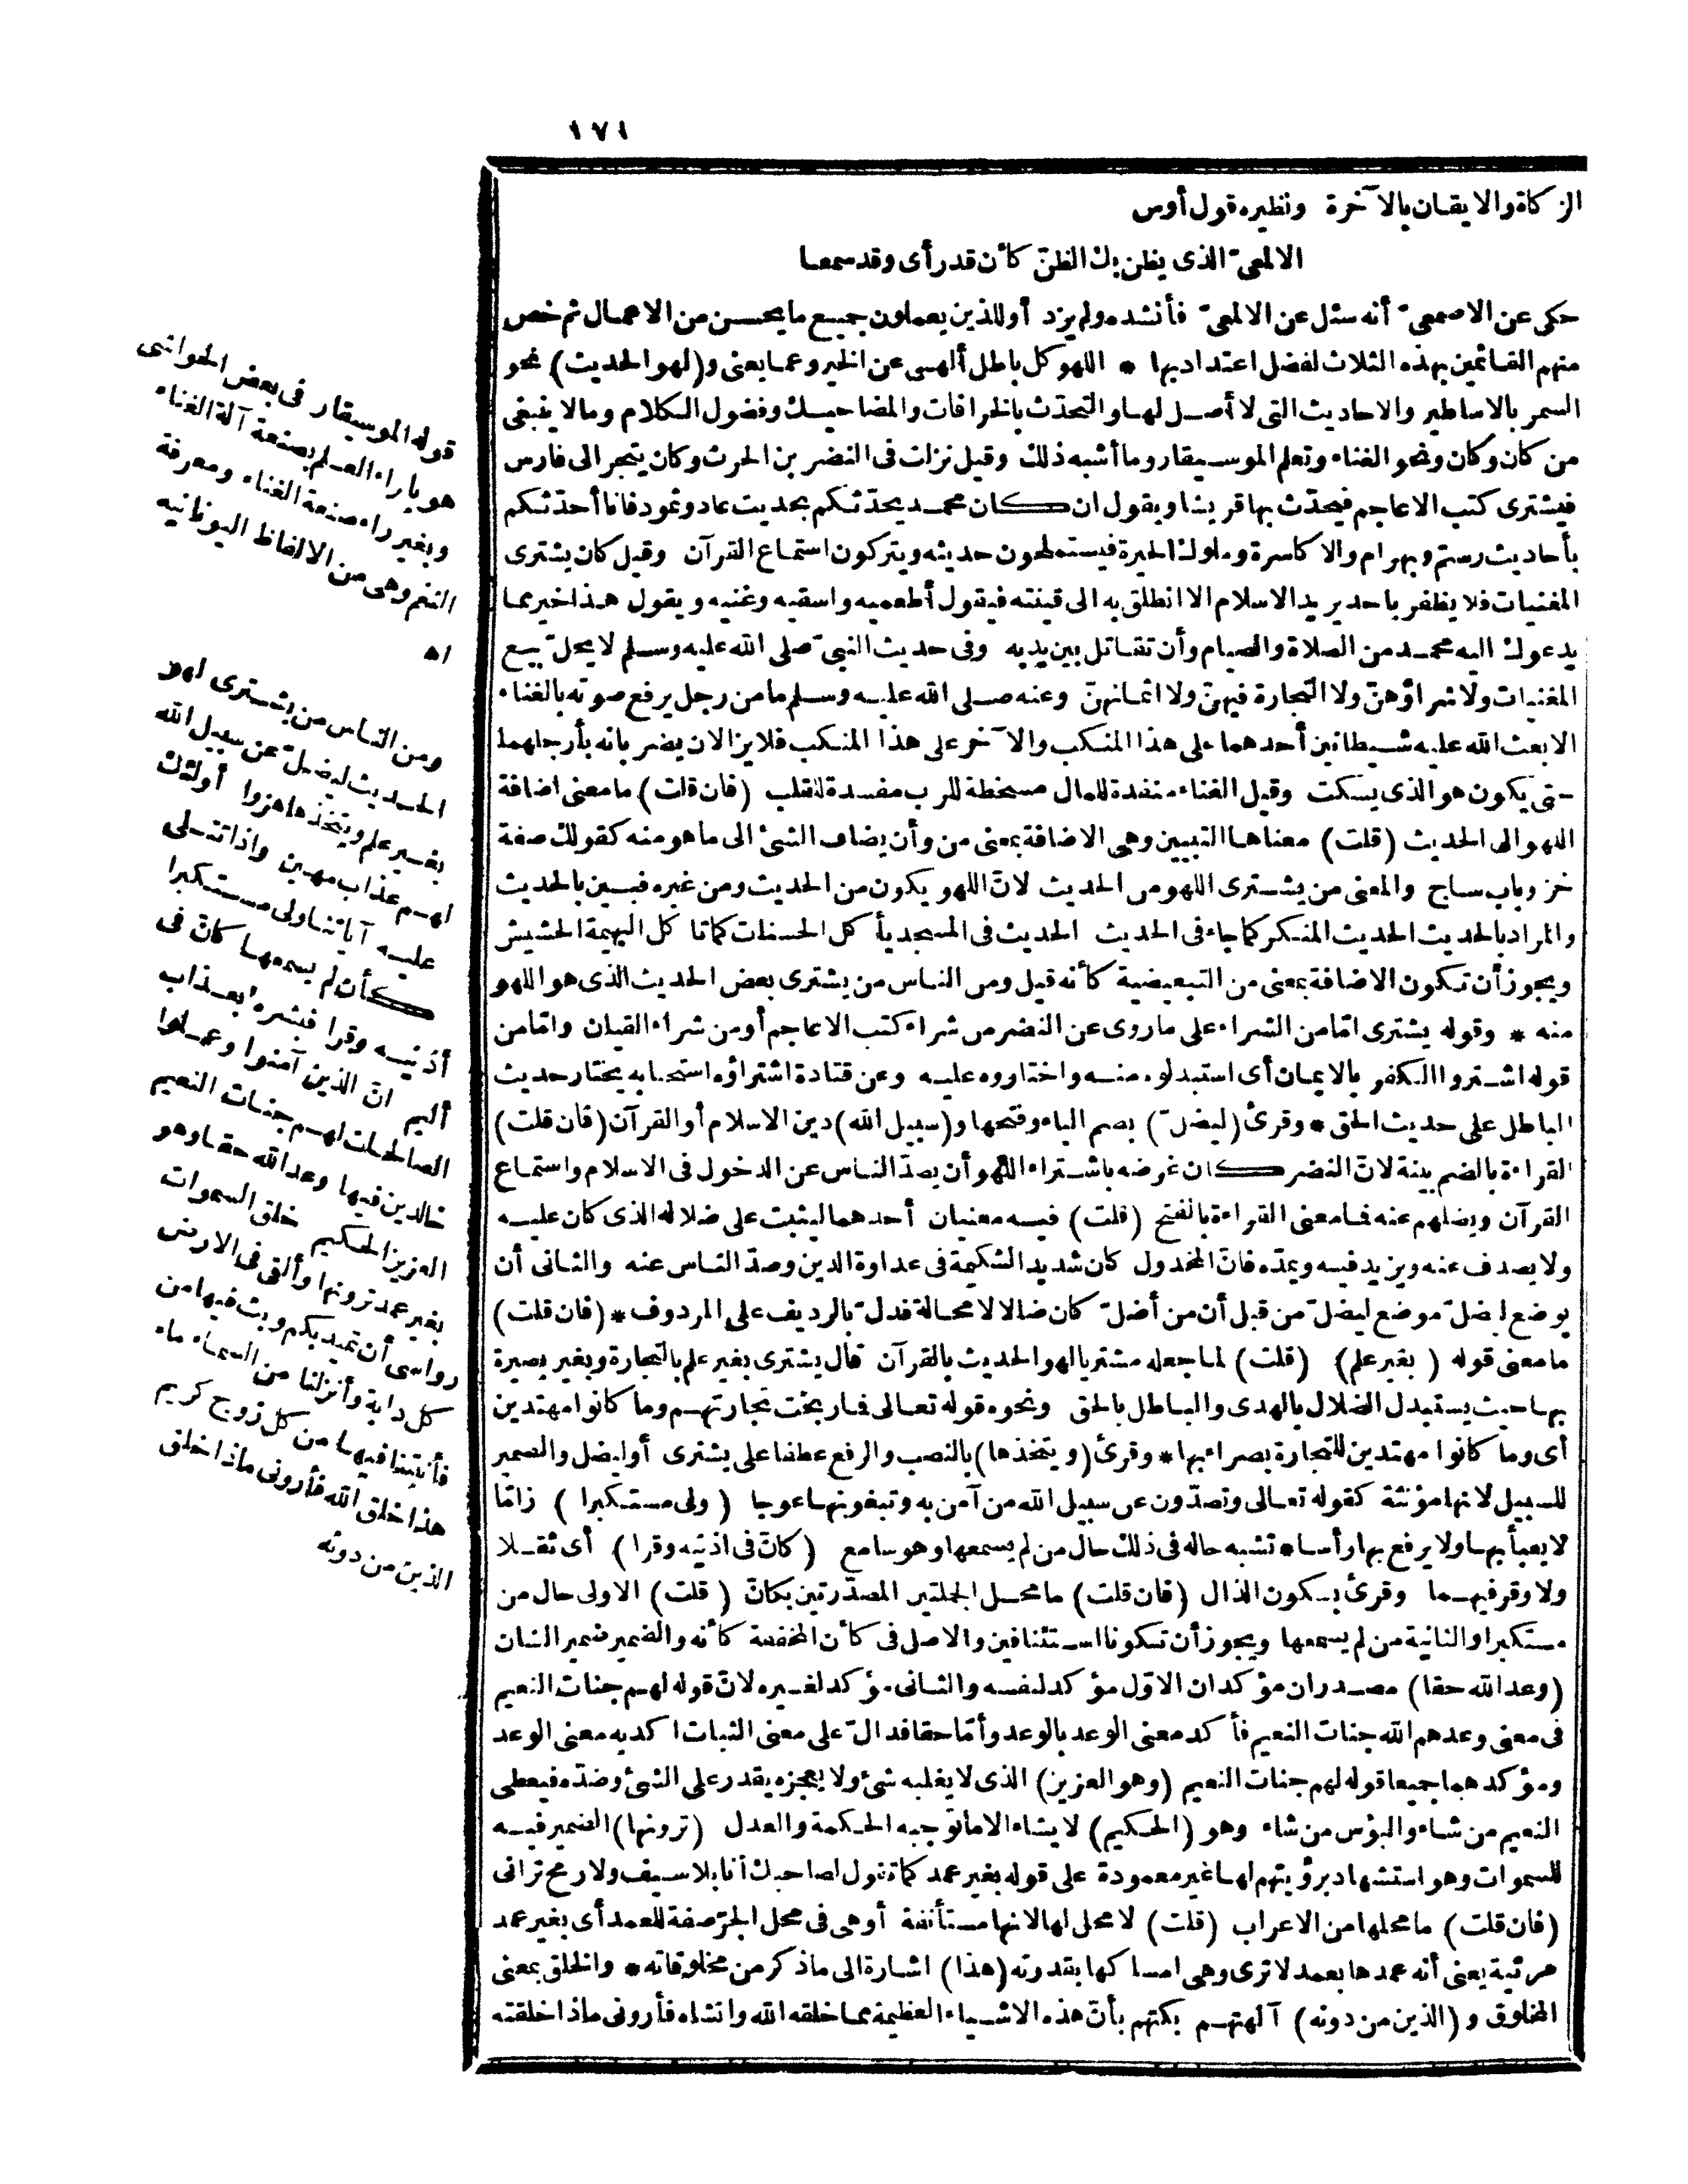 ١٧١
الزكاة والايقان بالآخرة ونظيره قول أوس
الالمعىّ الذى يظن بك الظنّ كأن قد رأى وقد سمعا
حكى عن الاصمعىّ أنه سئل عن الالمعىّ فأنشده ولم يزد أو للذين يعملون جميع ما يحسن من الاعمال ثم خص
منهم القائمين بهذه الثلاث لفضل اعتداد بها * اللهو كل باطل ألهى عن الخير وعما يعنى و(لهو الحديث) نحو
السمر بالاساطير والاحاديث التى لا أصل لها والتحدّث بالخرافات والمضاحيك وفضول الكلام وما لا ينبغى
من كان وكان ونحو الغناء وتعلم الموسيقار وما أشبه ذلك وقيل نزلت فى النضر بن الحرث وكان يتجر الى فارس
فيشترى كتب الاعاجم فيحدّث بها قريشا ويقول ان كان محمد يحدّثكم بحديث عاد وثمود فانا أحدّثكم
بأحاديث رستم وبهرام والاكاسرة وملوك الحيرة فيستملحون حديثه ويتركون استماع القرآن وقيل كان يشترى
المغنيات فلا يظفر باحد يريد الاسلام الا انطلق به الى قينته فيقول أطعميه واسقيه وغنيه ويقول هذا خير مما
يدعوك اليه محمد من الصلاة والصيام وأن تقاتل بين يديه وفى حديث النبىّ صلى الله عليه وسلم لا يحلّ بيع
المغنيات ولا شراؤهنّ ولا التجارة فيهنّ ولا اثمانهنّ وعنه صلى الله عليه وسلم ما من رجل يرفع صوته بالغناء
الا بعث الله عليه شيطانين أحدهما على هذا المنكب والآخر على هذا المنكب فلا يزالان يضربانه بأرجلهما
حتى يكون هو الذى يسكت وقيل الغناء منفدة للمال مسخطة للرب مفسدة للقلب (فان قلت) ما معنى اضافة
اللهو الى الحديث (قلت) معناها التبيين وهى الاضافة بمعنى من وأن يضاف الشئ الى ما هو منه كقولك صفة
خز وباب ساج والمعنى من يشترى اللهو من الحديث لانّ اللهو يكون من الحديث ومن غيره فبين بالحديث
والمراد بالحديث الحديث المنكر كما جاء فى الحديث الحديث فى المسجد يأكل الحسنات كما تأكل البهيمة الحشيش
ويجوز أن تكون الاضافة بمعنى من التبعيضية كأنه قيل ومن الناس من يشترى بعض الحديث الذى هو اللهو
منه * وقوله يشترى امّا من الشراء على ما روى عن النضر من شراء كتب الاعاجم أو من شراء القيان وامّا من
قوله اشتروا الكفر بالايمان أى استبدلوه منه واختاروه عليه وعن قتادة اشتراؤه استحبابه يختار حديث
الباطل على حديث الحق * وقرئ (ليضلّ) بضم الياء وفتحها و(سبيل الله) دين الاسلام أو القرآن (فان قلت)
القراءة بالضم بينة لانّ النضر كان غرضه باشتراء اللهو أن يصدّ الناس عن الدخول فى الاسلام واستماع
القرآن ويضلهم عنه فما معنى القراءة بالفتح (قلت) فيه معنيان أحدهما ليثبت على ضلاله الذى كان عليه
ولا يصدف عنه ويزيد فيه ويمدّه فانّ المخذول كان شديد الشكيمة فى عداوة الدين وصدّ الناس عنه والثانى أن
يوضع ليضلّ موضع ليضلّ من قبل أن من أضلّ كان ضالا لا محالة فدلّ بالرديف على المردوف * (فان قلت)
ما معنى قوله (بغير علم) (قلت) لما جعله مشتريا لهو الحديث بالقرآن قال يشترى بغير علم بالتجارة وبغير بصيرة
بها حيث يستبدل الضلال بالهدى والباطل بالحق ونحوه قوله تعالى فما ربحت تجارتهم وما كانوا مهتدين
أى وما كانوا مهتدين للتجارة بصراء بها * وقرئ (ويتخذها) بالنصب والرفع عطفا على يشترى أو ليضل والضمير
للسبيل لانها مؤنثة كقوله تعالى وتصدّون عن سبيل الله من آمن به وتبغونها عوجا (ولى مستكبرا) زامّا
لا يعبأ بها ولا يرفع بها رأسا * تشبه حاله فى ذلك حال من لم يسمعها وهو سامع (كانّ فى اذنيه وقرا) أى ثقلا
ولا وقر فيهما وقرئ بسكون الذال (فان قلت) ما محل الجملتين المصدّرتين بكانّ (قلت) الاولى حال من
مستكبرا والثانية من لم يسمعها ويجوز أن تكونا استئنافين والاصل فى كأن المخففة كأنه والضمير ضمير الشان
(وعد الله حقا) مصدران مؤكدان الاوّل مؤكد لنفسه والثانى مؤكد لغيره لانّ قوله لهم جنات النعيم
فى معنى وعدهم الله جنات النعيم فأكد معنى الوعد بالوعد وأمّا حقا فدالّ على معنى الثبات اكد به معنى الوعد
ومؤكدهما جميعا قوله لهم جنات النعيم (وهو العزيز) الذى لا يغلبه شئ ولا يعجزه يقدر على الشئ وضدّه فيعطى
النعيم من شاء والبؤس من شاء وهو (الحكيم) لا يشاء الا ما توجبه الحكمة والعدل (ترونها) الضمير فيه
للسموات وهو استشهاد برؤيتهم لها غير معمودة على قوله بغير عمد كما تقول لصاحبك أنا بلا سيف ولا رمح ترانى
(فان قلت) ما محلها من الاعراب (قلت) لا محل لها لانها مستأنفة أو هى فى محل الجرّ صفة للعمد أى بغير عمد
مرئية يعنى أنه عمدها بعمد لا ترى وهى امساكها بقدرته (هذا) اشارة الى ما ذكر من مخلوقاته * والخلق بمعنى
المخلوق و(الذين من دونه) آلهتهم بكتهم بأنّ هذه الاشياء العظيمة مما خلقه الله وانشاه فأرونى ماذا خلقته
قوله الموسيقار فى بعض الحواشى
هو بالراء العلم بصنعة آلة الغناء
وبغير راء صنعة الغناء ومعرفة
النغم وهى من الالفاظ اليونانيه
اه
ومن الناس من يشترى لهو
الحديث ليضلّ عن سبيل الله
بغير علم ويتخذها هزوا أولئك
لهم عذاب مهين واذا تتلى
عليه آياتنا ولى مستكبرا
كأن لم يسمعها كانّ فى
أذنيه وقرا فبشره بعذاب
أليم انّ الذين آمنوا وعملوا
الصالحات لهم جنات النعيم
خالدين فيها وعد الله حقا وهو
العزيز الحكيم خلق السموات
بغير عمد ترونها وألقى فى الارض
رواسى أن تميد بكم وبث فيها من
كل دابة وأنزلنا من السماء ماء
فأنبتنا فيها من كل زوج كريم
هذا خلق الله فأرونى ماذا خلق
الذين من دونه